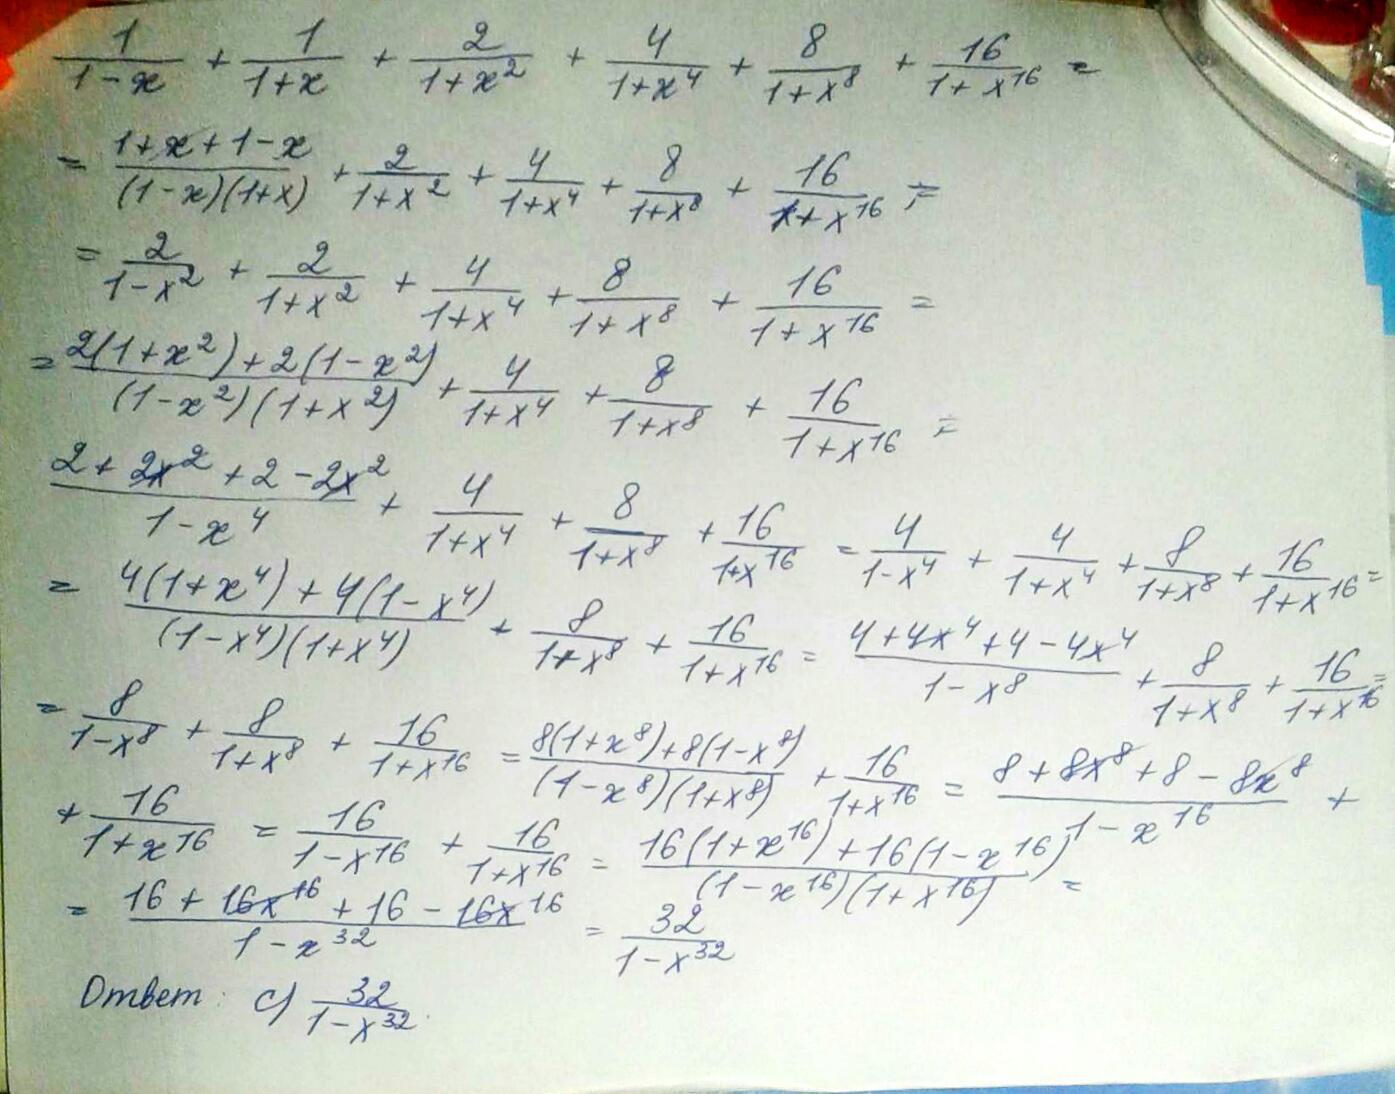 1/(1-x) + 1/(1+x) + 2/(1+x²) + 4/(1+x⁴) + 8/(1+x⁸) + 16/(1+x¹⁶) =
= (1+x+1-x)/((1-x)(1+x)) + 2/(1+x²) + 4/(1+x⁴) + 8/(1+x⁸) + 16/(1+x¹⁶) =
= 2/(1-x²) + 2/(1+x²) + 4/(1+x⁴) + 8/(1+x⁸) + 16/(1+x¹⁶) =
= (2(1+x²)+2(1-x²))/((1-x²)(1+x²)) + 4/(1+x⁴) + 8/(1+x⁸) + 16/(1+x¹⁶) =
(2+2x²+2-2x²)/(1-x⁴) + 4/(1+x⁴) + 8/(1+x⁸) + 16/(1+x¹⁶) = 4/(1-x⁴) + 4/(1+x⁴) + 8/(1+x⁸) + 16/(1+x¹⁶) =
= (4(1+x⁴)+4(1-x⁴))/((1-x⁴)(1+x⁴)) + 8/(1+x⁸) + 16/(1+x¹⁶) = (4+4x⁴+4-4x⁴)/(1-x⁸) + 8/(1+x⁸) + 16/(1+x¹⁶) =
= 8/(1-x⁸) + 8/(1+x⁸) + 16/(1+x¹⁶) = (8(1+x⁸)+8(1-x⁸))/((1-x⁸)(1+x⁸)) + 16/(1+x¹⁶) = (8+8x⁸+8-8x⁸)/(1-x¹⁶) +
+ 16/(1+x¹⁶) = 16/(1-x¹⁶) + 16/(1+x¹⁶) = (16(1+x¹⁶)+16(1-x¹⁶))/((1-x¹⁶)(1+x¹⁶)) =
= (16+16x¹⁶+16-16x¹⁶)/(1-x³²) = 32/(1-x³²)
Ответ: c) 32/(1-x³²).